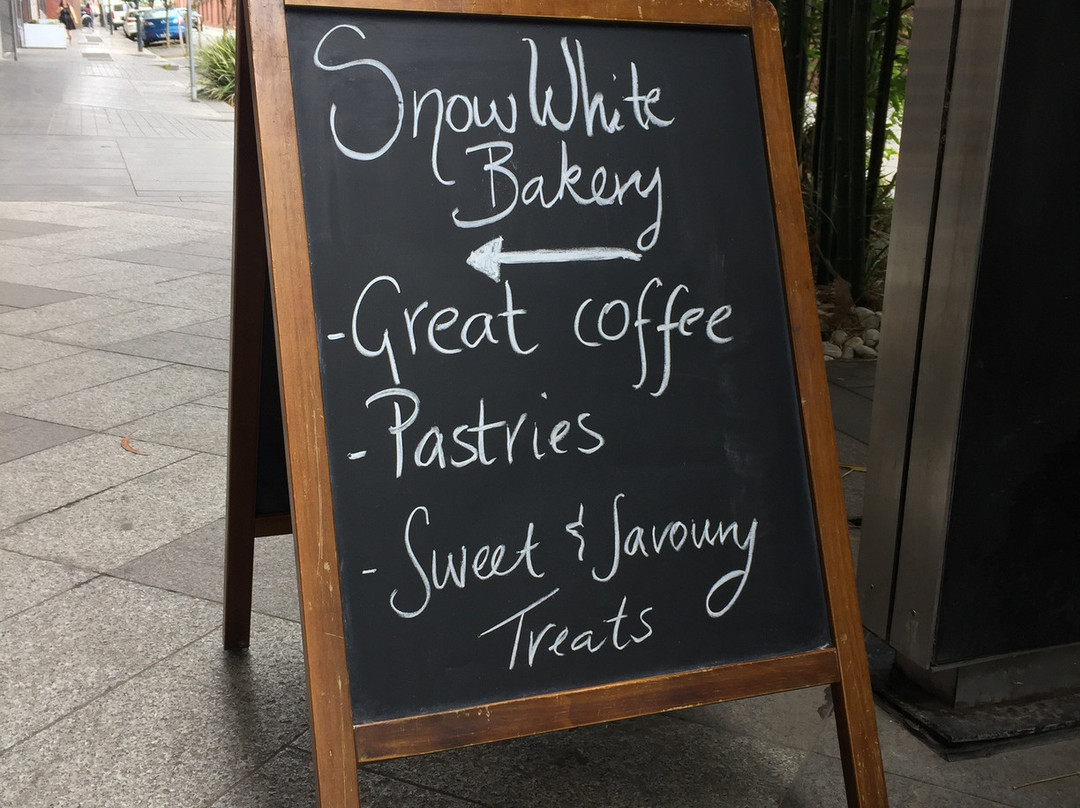 Snow White
Bakery
- Great coffee
- Pastries
- Sweet & Savoury
Treats